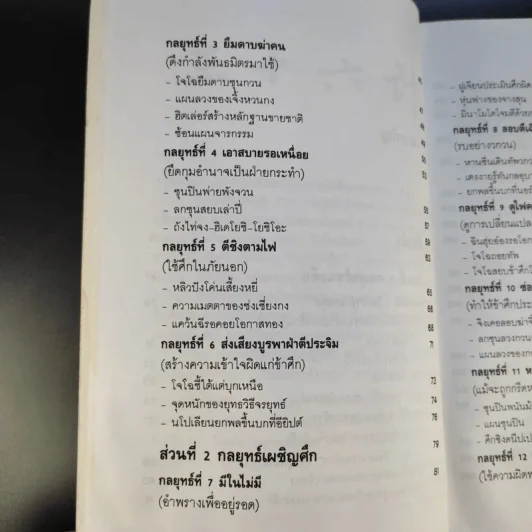 กลยุทธ์ที่ 3 ยืมดาบฆ่าคน
(ดึงกำลังพันธมิตรมาใช้)
- โจโฉยืมดาบซุนกวน
- แผนลวงของเจิ้งหวนกง
- ฮิตเล่อร์สร้างหลักฐานขายชาติ
- ซ้อนแผนจารกรรม
กลยุทธ์ที่ 4 เอาสบายรอเหนื่อย
(ยึดกุมอำนาจเป็นฝ่ายกระทำ)
- ซุนปินพ่ายพังจวน
- ลกซุนสยบเล่าปี่ 55
- ถังไท่จง-ฮิเดโยชิ-โยชิโอะ 57
กลยุทธ์ที่ 5 ตีชิงตามไฟ 59
(ใช้ศึกในภัยนอก) 63
- หลิวปังโค่นเสี้ยงหยี่ 65
- ความเมตตาของซ่งเซี่ยงกง 66
- แคว้นฉีรอคอยโอกาสทอง 68
กลยุทธ์ที่ 6 ส่งเสียงบูรพาฝ่าตีประจิม 71
(สร้างความเข้าใจผิดแก่ข้าศึก)
- โจโฉชี้ใต้แต่บุกเหนือ 73
- จุดหนักของยุทธวิธีจรยุทธ์ 74
- นโปเลียนยกพลขึ้นบกที่อียิปต์ 76
ส่วนที่ 2 กลยุทธ์เผชิญศึก 79
กลยุทธ์ที่ 7 มีในไม่มี 81
(อำพรางเพื่ออยู่รอด)
- ผู้เจียนประเมินศึกผิด
- หุ่นฟางของจางสุน
- มินาโมโตโจมตีด้วย
กลยุทธ์ที่ 8 ลอบตี
(รบอย่างวกวน)
- หานซิ่นเดินทัพ
- ยกพลขึ้นบกที่
กลยุทธ์ที่ 9 ดูไฟ
(ดูการเปลี่ยนแปล
- โจโฉถอยทัพ
- โจโฉสอบข้าศึก
กลยุทธ์ที่ 10 ซ่อ
(ทำให้ข้าศึกประ
- จิงเคอลอบฆ่า
- ลกซุนลวงกวน
- แผนลวงของก
กลยุทธ์ที่ 11 ห
(แม้จะถูกกรีด
- ซุนปินพนันม้
- แผนซุนปิน
กลยุทธ์ที่ 12
(ใช้ความผิดพ